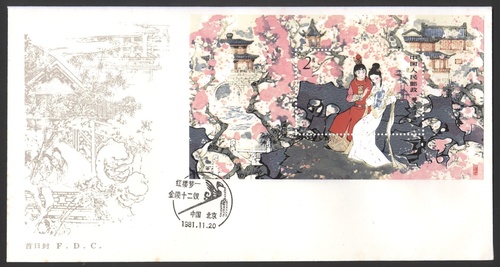 2元
中国人民邮政
红楼梦—
金陵十二钗
中国 北京
1981.11.20
首日封 F. D. C.